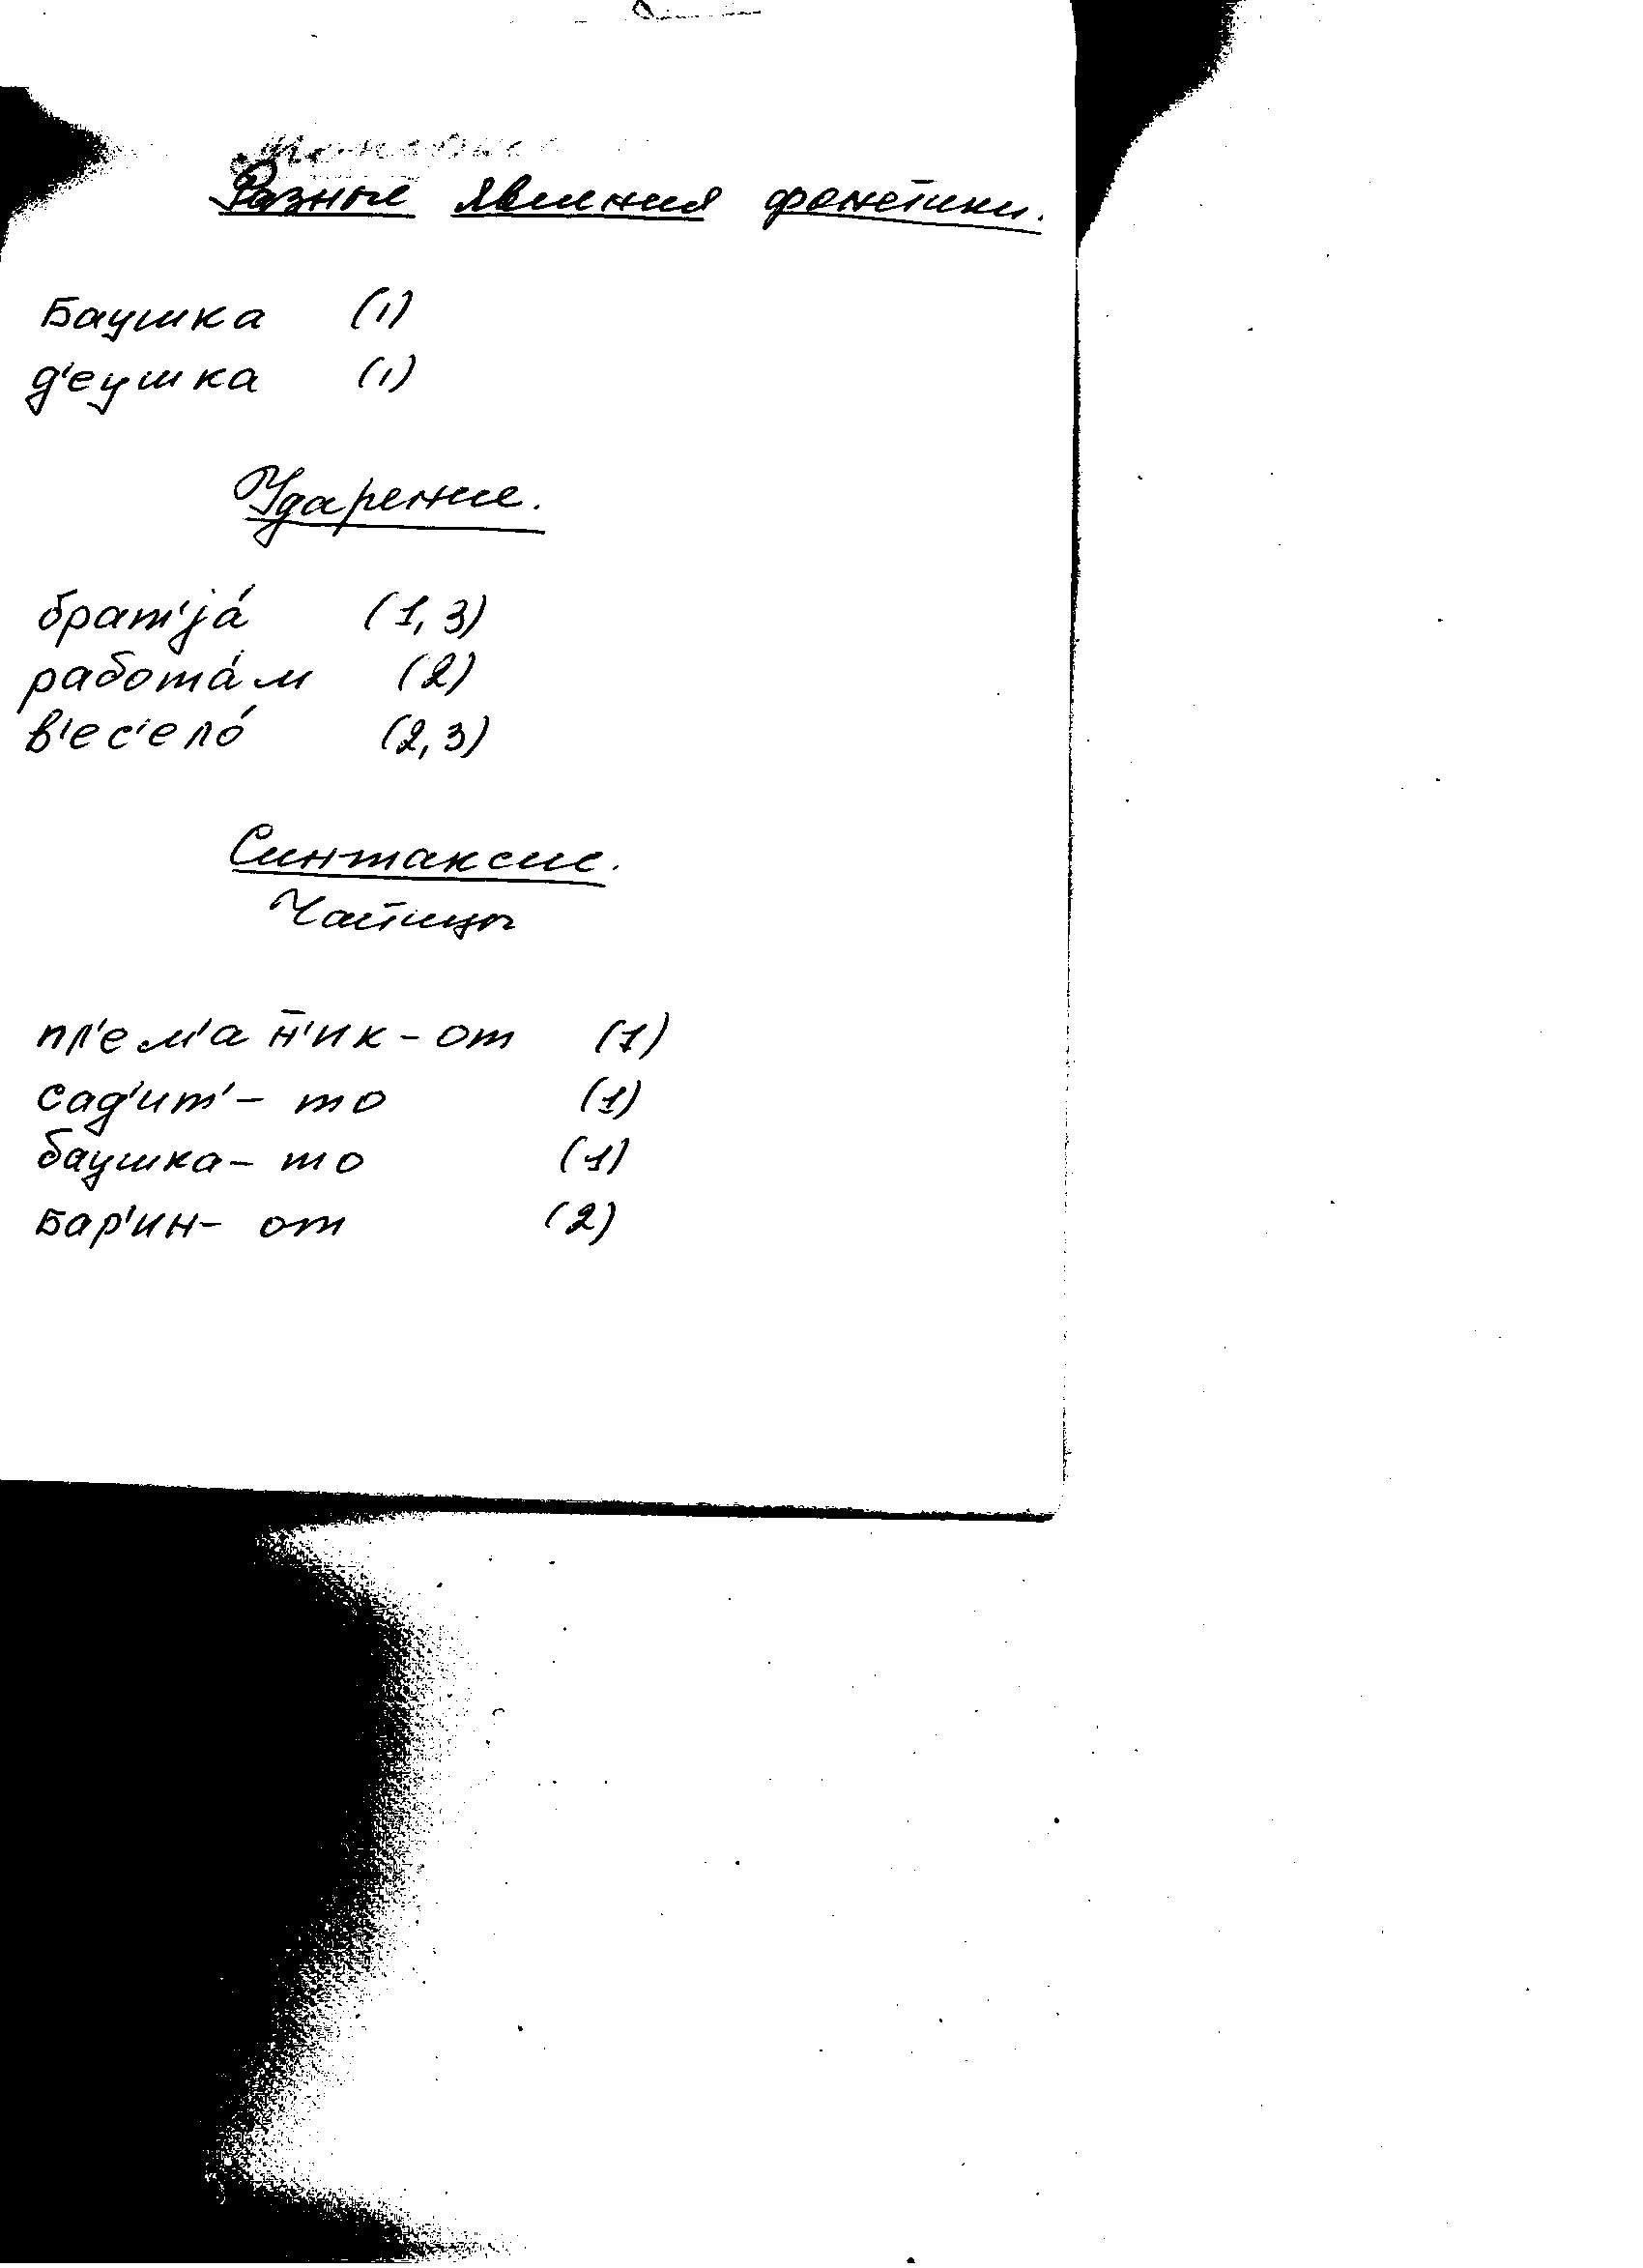 Разные явления фонетики.
Баушка (1)
д'еушка (1)
Ударение.
брат'jа́ (1, 3)
рабоmа́м (2)
в'ес'ело́ (2, 3)
Синтаксис.
Частицы
пл'ем'а н̄'ик-от (1)
сад'ит'- то (1)
баушка- то (1)
Бар'ин- от (2)